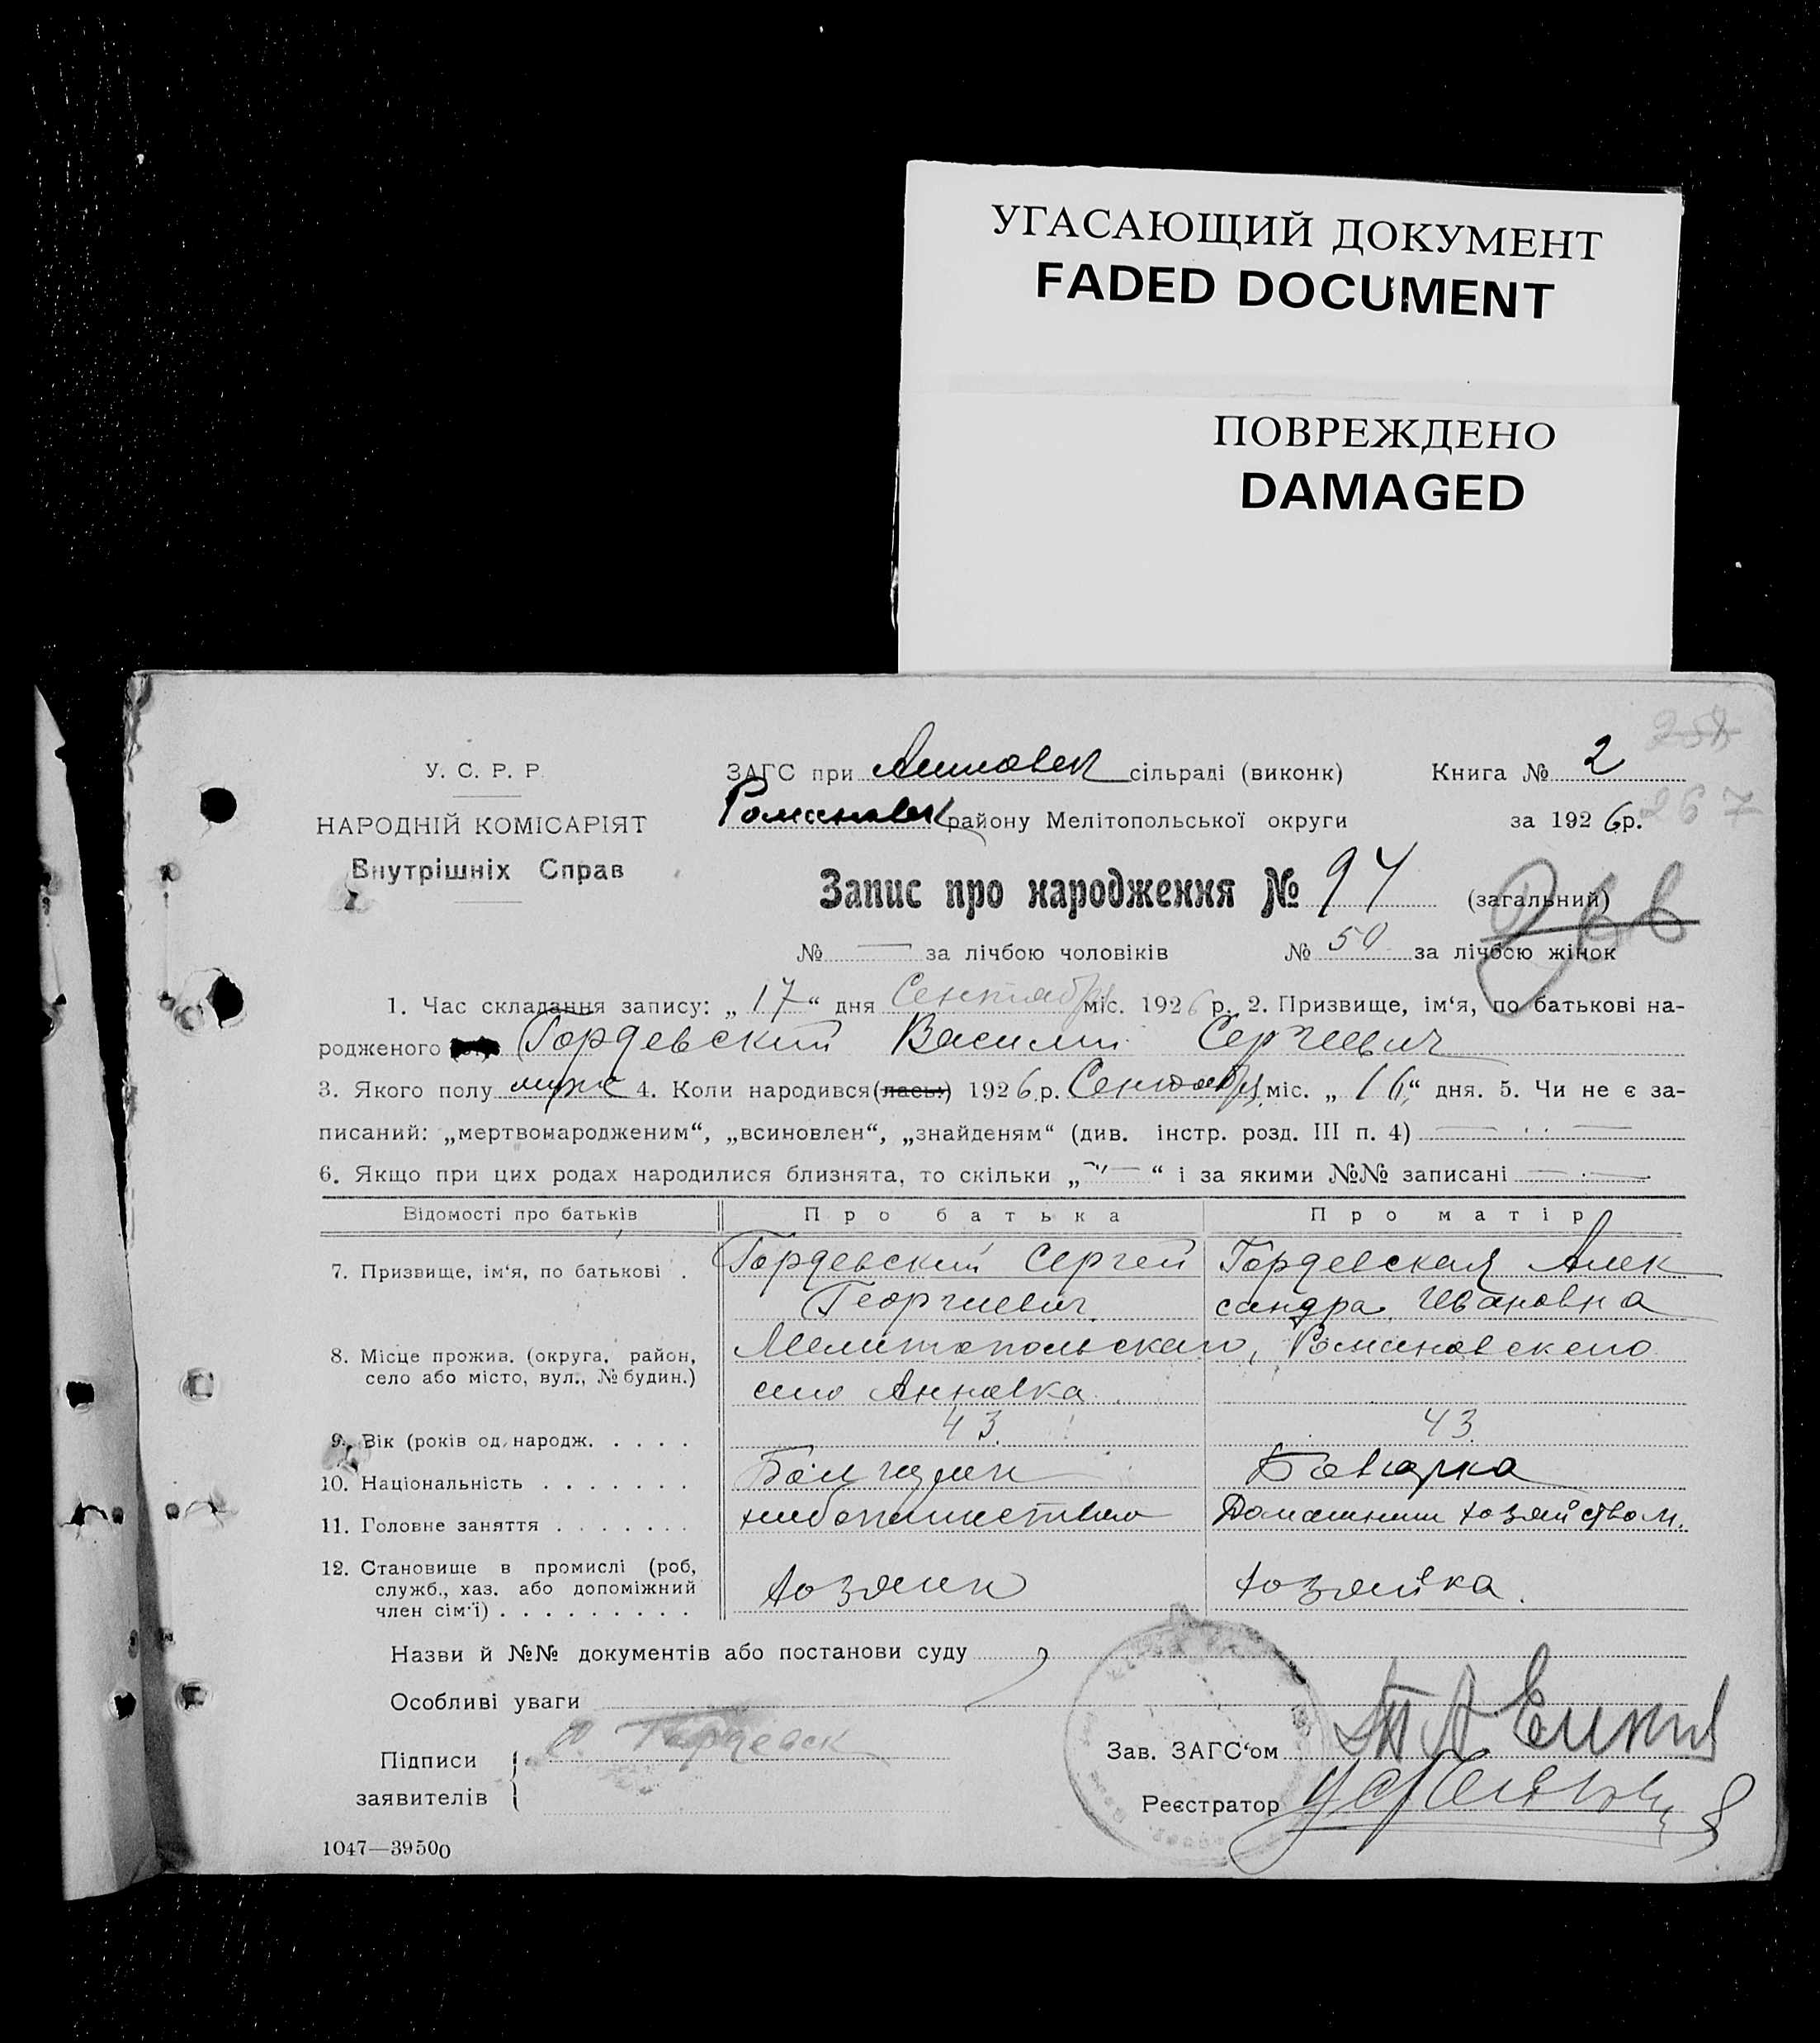 УГАСАЮЩИЙ ДОКУМЕНТ
FADED DOCUMENT
ПОВРЕЖДЕНО
DAMAGED
267
У. С. Р. Р.
НАРОДНІЙ КОМІСАРІЯТ
Внутрішніх Справ
ЗАГС при Анновск сільраді (виконк) Книга № 2
Романовск району Мелітопольської округи за 1926 р.
Запис про народження № 94 (загальний)
№ — за лічбою чоловіків № 50 за лічбою жінок
1. Час складання запису: „17“ дня Сентября міс. 1926 р. 2. Призвище, ім‘я, по батькові на-
родженого Гордевский Василий Сергеевич
3. Якого полу муж 4. Коли народився(лась:) 1926 р. Сентября міс. „16“ дня. 5. Чи не є за-
писаний: „мертвонародженим“, „всиновлен“, „знайденям“ (див. інстр. розд. III п. 4) —
6. Якщо при цих родах народилися близнята, то скільки „—“ і за якими №№ записані —
Відомості про батьків Про батька Про матір
7. Призвище, ім‘я, по батькові . Гордевский Сергей Гордевская Алек
Георгиевич сандра Ивановна
8. Місце прожив. (округа, район, Мелитопольского, Романовского
село або місто, вул., № будин.) село Анновка
9. Вік (років од народж. . . . . 43. 43.
10. Національність . . . . . . . Болгарин Болгарка
11. Головне заняття . . . . . . . хлебопашество Домашним хозяйством.
12. Становище в промислі (роб,
служб., хаз. або допоміжний хозяин хозяйка.
член сім‘ї) . . . . . . . . .
Назви й №№ документів або постанови суду
Особливі уваги
Підписи С. Гордевск
заявителів
Зав. ЗАГС‘ом
Реєстратор
1047—39500